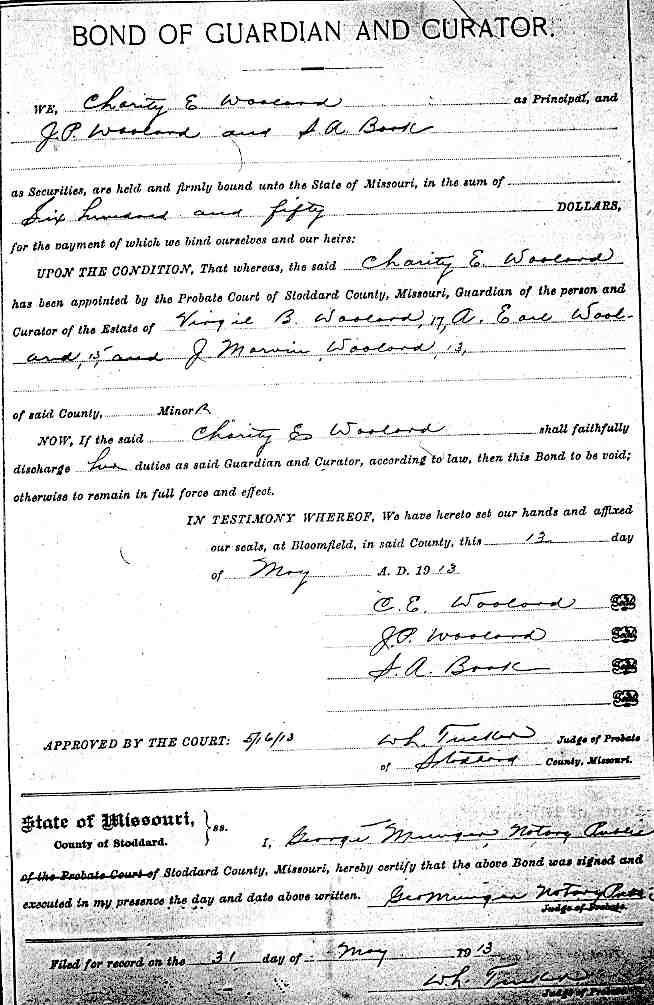 BOND OF GUARDIAN AND CURATOR.
WE, Charity E Woolard as Principal, and
J.P. Woolard and S A Book
as Securities, are held and firmly bound unto the State of Missouri, in the sum of
Six hundred and fifty DOLLARS,
for the payment of which we bind ourselves and our heirs:
UPON THE CONDITION, That whereas, the said Charity E. Woolard
has been appointed by the Probate Court of Stoddard County, Missouri, Guardian of the person and
Curator of the Estate of Virgie B. Woolard, 17, A. Earl Wool-
ard, 15, and J Marvin Woolard, 13,
of said County, Minor
NOW, If the said Charity E Woolard shall faithfully
discharge her duties as said Guardian and Curator, according to law, then this Bond to be void;
otherwise to remain in full force and effect.
IN TESTIMONY WHEREOF, We have hereto set our hands and affixed
our seals, at Bloomfield, in said County, this 13 day
of May A. D. 1913
C. E. Woolard Seal
J.P. Woolard Seal
S. A. Book Seal
Seal
APPROVED BY THE COURT: 5/16/13 W.L. Tucker Judge of Probate
of Stoddard County, Missouri.
State of Missouri, } ss.
County of Stoddard.
I, George Munger, Notary Public
of the Probate Court of Stoddard County, Missouri, hereby certify that the above Bond was signed and
executed in my presence the day and date above written. Geo Munger Notary Public
Judge of Probate.
Filed for record on the 31 day of May 1913
W.L. Tucker
Judge of Probate